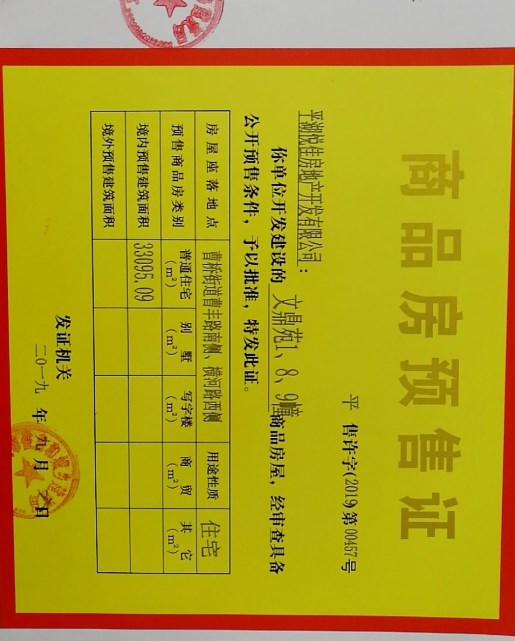 商品房预售证
平 售许字(2019)第00457号
平湖悦佳房地产开发有限公司：
你单位开发建设的 文鼎苑1、8、9幢商品房屋，经审查具备
公开预售条件，予以批准，特发此证。
房屋座落地点 曹桥街道曹丰路南侧、横河路西侧 用途性质 住宅
预售商品房类别 普通住宅(m²) 别墅(m²) 写字楼(m²) 商贸(m²) 其它(m²)
境内预售建筑面积 33095.09
境外预售建筑面积
发证机关
二〇一九 年 九 月 日